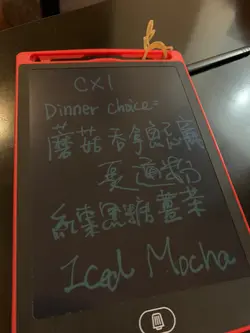 CX1
Dinner choice=
蘑菇吞拿魚忌廉
通粉
紅棗黑糖薑茶
Iced Mocha